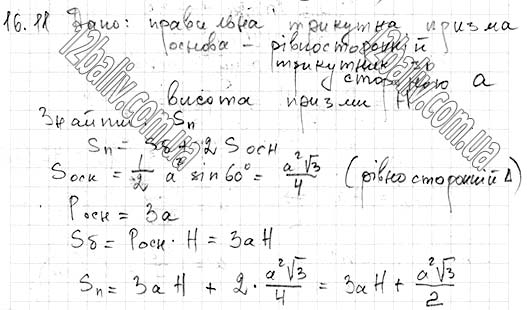 16.18 Дано: правильна трикутна призма
основа – рівносторонній
трикутник зі
стороною a
висота призми H
Знайти: Sп
Sп = Sб + 2 Sосн
Sосн = 1/2 a² sin 60° = a²√3/4 (рівносторонній Δ)
Pосн = 3a
Sб = Pосн · H = 3aH
Sп = 3aH + 2 · a²√3/4 = 3aH + a²√3/2
12baliv.com.ua
12baliv.com.ua